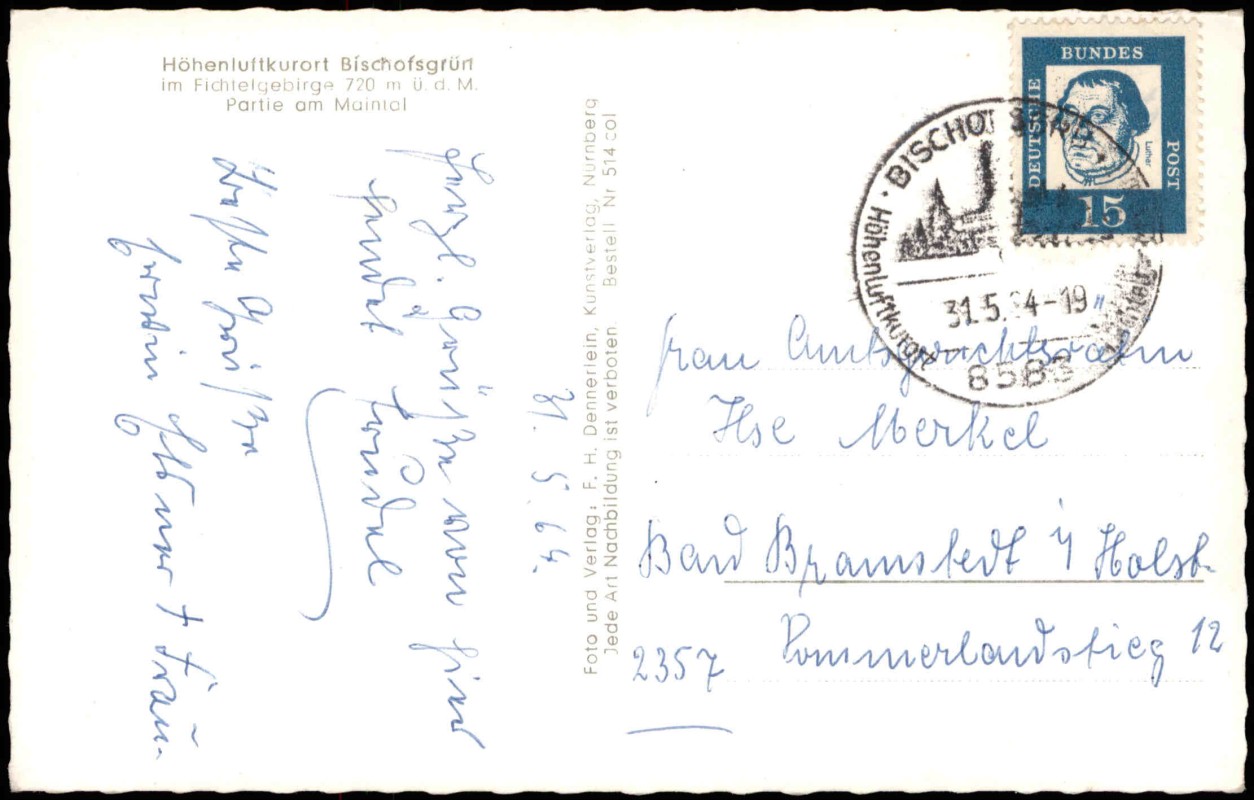 Höhenluftkurort Bischofsgrün
im Fichtelgebirge 720 m ü. d. M.
Partie am Maintal
31. 5. 64.
Herzl. Grüße von hier
sendet
Beste Grüße
Foto und Verlag: F. H. Dennerlein, Kunstverlag, Nürnberg
Jede Art Nachbildung ist verboten. Bestell Nr 514 col
DEUTSCHE
BUNDES
POST
Luther
15
BISCHO
Höhenluftkurort
31.5.64-19
8583
Frau Amtsgerichtsrätin
Ilse Merkel
Bad Bramstedt i/ Holst.
2357 Sommerlandstieg 12